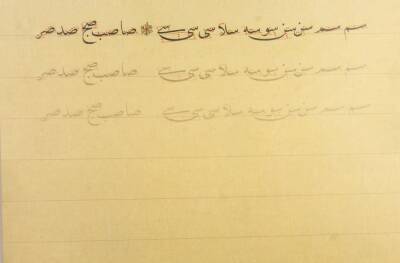 سم سم سن سن سو سه سلا سى سى سے صا صب صج صد صر
سم سم سن سن سو سه سلا سى سى سے صا صب صج صد صر
سم سم سن سن سو سه سلا سى سى سے صا صب صج صد صر